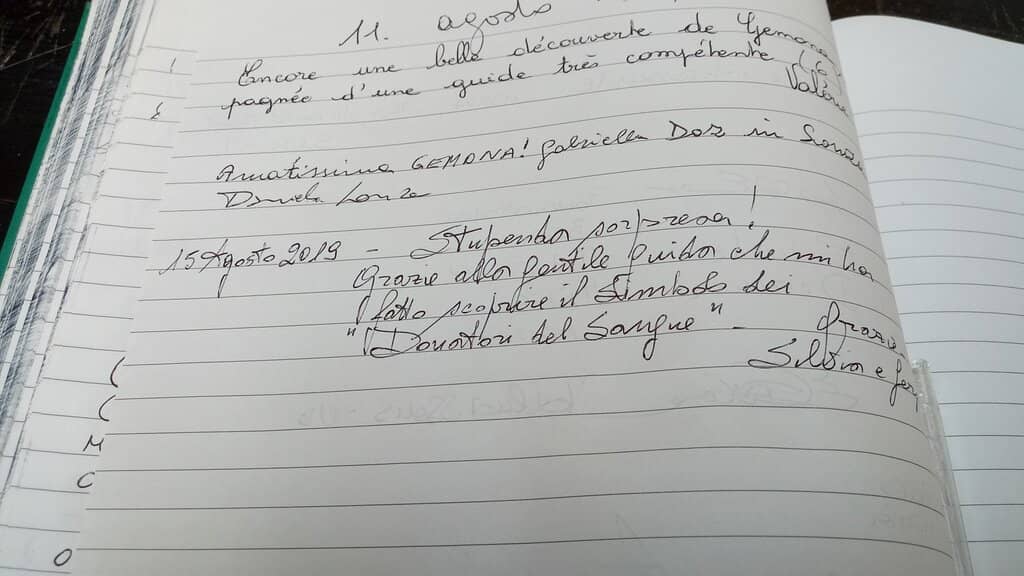 11. agosto
Encore une belle découverte de Gemona
pagnée d'une guide très compétente
Valérie
Amatissima GEMONA! Gabriella Doz in
Daniela Lonza
15 Agosto 2019 - Stupenda sorpresa!
Grazie alla gentile guida che mi ha
fatto scoprire il simbolo dei
"Donatori del Sangue" - Grazie
Silvia e